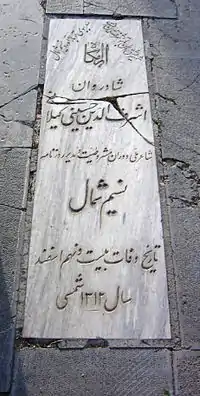 شادروان
اشرف الدین حسینی گیلانی
شاعر ملی دوران مشروطیت و مدیر روزنامه
نسیم شمال
تاریخ وفات بیست و نهم اسفند
سال ۱۳۱۲ شمسی